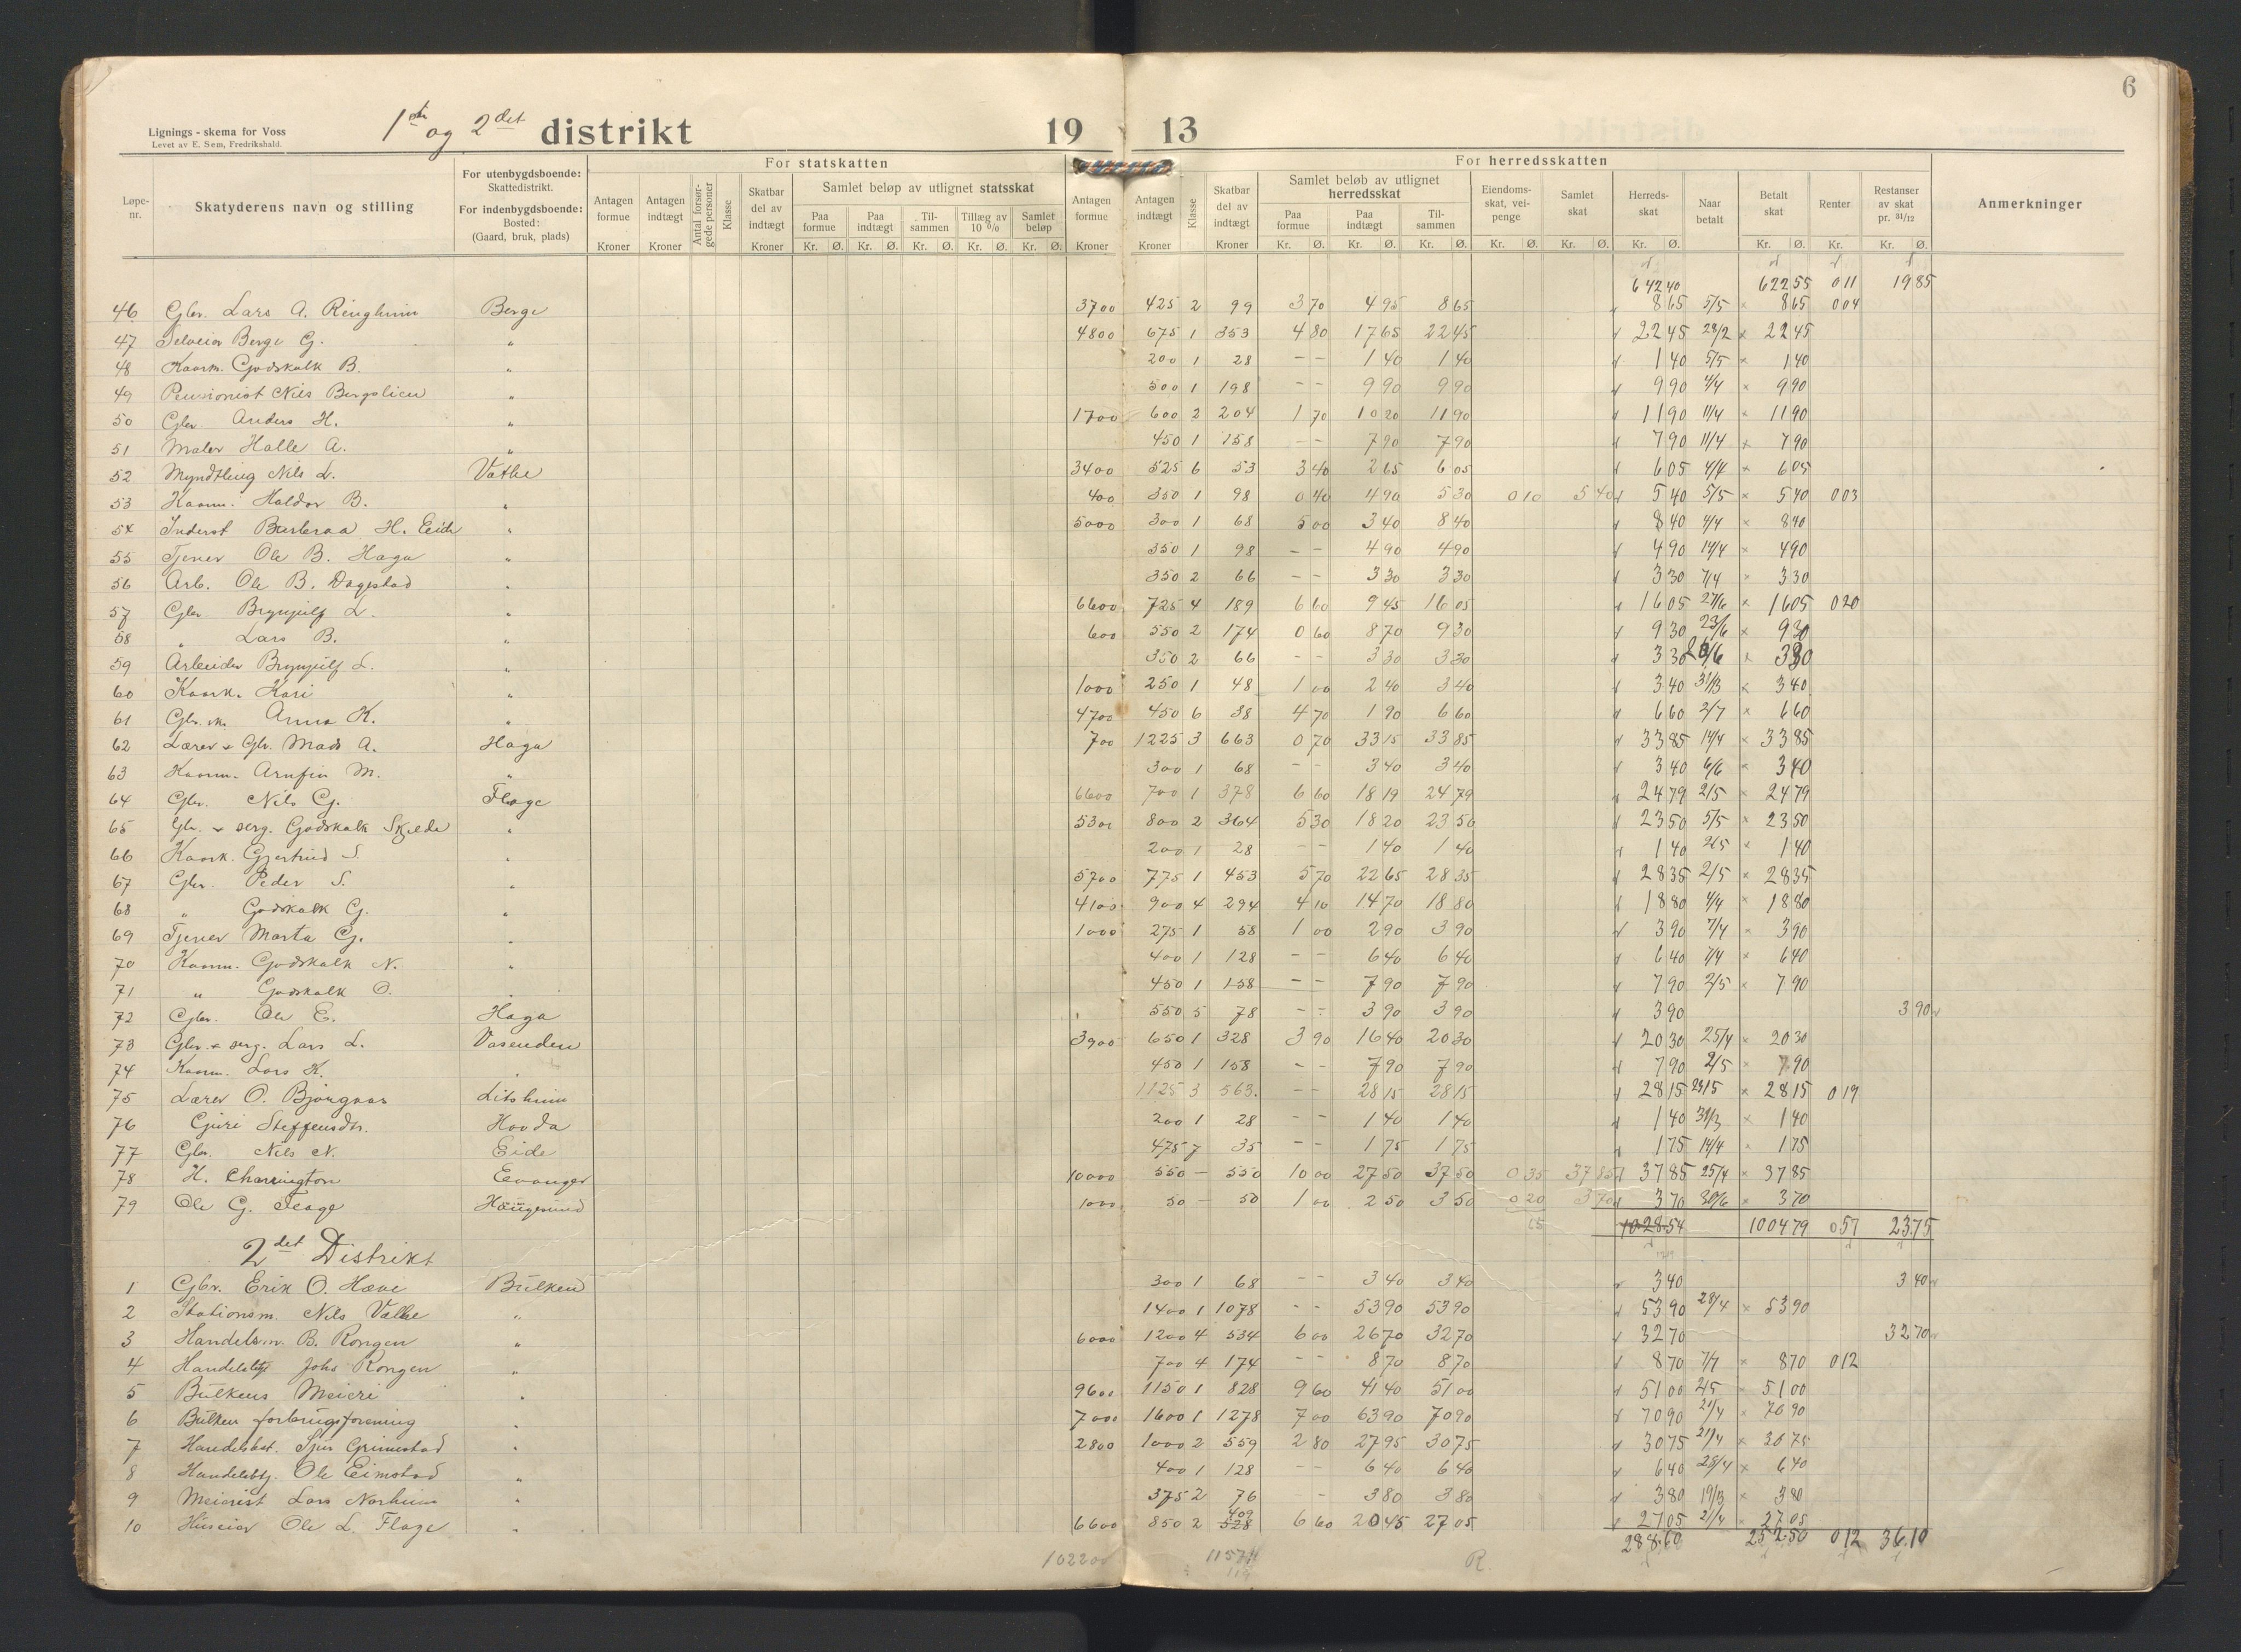 6
Lignings - skema for Voss
Levet av E. Sem, Fredrikshald.
1ste og 2det distrikt 19 13
For statskatten For herredsskatten
Løpe-nr. Skatyderens navn og stilling For utenbygdsboende: Skattedistrikt. For indenbygdsboende: Bosted: (Gaard, bruk, plads) Antagen formue Kroner Antagen indtægt Kroner Antal forsør-gede personer Klasse Skatbar del av indtægt Kroner Samlet beløp av utlignet statsskat Paa formue Kr. Ø. Paa indtægt Kr. Ø. Til-sammen Kr. Ø. Tillæg av 10 % Kr. Ø. Samlet beløp Kr. Ø. Antagen formue Kroner Antagen indtægt Kroner Klasse Skatbar del av indtægt Kroner Samlet beløb av utlignet herredsskat Paa formue Kr. Ø. Paa indtægt Kr. Ø. Til-sammen Kr. Ø. Eiendoms-skat, vei-penge Kr. Ø. Samlet skat Kr. Ø. Herreds-skat Kr. Ø. Naar betalt Betalt skat Kr. Ø. Renter Kr. Ø. Restanser av skat pr. 31/12 Kr. Ø. Anmerkninger
642 40 622 55 0 11 19 85
46 Gbr. Lars A. Ringheim Berge 3700 425 2 99 3 70 4 95 8 65 8 65 5/5 × 8 65 0 04
47 Selveier Berge G. " 4800 675 1 353 4 80 17 65 22 45 22 45 28/2 × 22 45
48 Kaarm. Godskalk B. " 200 1 28 - - 1 40 1 40 1 40 5/5 × 1 40
49 Pensionist Nils Bergslien " 500 1 198 - - 9 90 9 90 9 90 4/4 × 9 90
50 Gbr Anders H. " 1700 600 2 204 1 70 10 20 11 90 11 90 11/4 × 11 90
51 Maler Halle A. " 450 1 158 - - 7 90 7 90 7 90 11/4 × 7 90
52 Myndtling Nils L. Væthe 3400 525 6 53 3 40 2 65 6 05 6 05 4/4 × 6 05
53 Kaarm. Haldor B. " 400 350 1 98 0 40 4 90 5 30 0 10 5 40 5 40 5/5 × 5 40 0 03
54 Inderst Barbraa H. Eide " 5000 300 1 68 5 00 3 40 8 40 8 40 4/4 × 8 40
55 Tjener Ole B. Haga " 350 1 98 - - 4 90 4 90 4 90 14/4 × 4 90
56 Arb. Ole B. Dagestad " 350 2 66 - - 3 30 3 30 3 30 7/4 × 3 30
57 Gbr Brynjulf L. " 6600 725 4 189 6 60 9 45 16 05 16 05 27/6 × 16 05 0 20
58 " Lars B. " 600 550 2 174 0 60 8 70 9 30 9 30 23/6 × 9 30
59 Arbeider Brynjulf L. " 350 2 66 - - 3 30 3 30 3 30 × 3 30
60 Kaark. Kari " 1000 250 1 48 1 00 2 40 3 40 3 40 31/3 × 3 40
61 Gbr. Anna K. " 4700 450 6 38 4 70 1 90 6 60 6 60 2/7 × 6 60
62 Lærer & Gbr. Mads A. Haga 700 1225 3 663 0 70 33 15 33 85 33 85 14/4 × 33 85
63 Kaarm. Arnfin M. " 300 1 68 - - 3 40 3 40 3 40 6/6 × 3 40
64 Gbr. Nils G. Flage 6600 700 1 378 6 60 18 19 24 79 24 79 2/5 × 24 79
65 Gbr. & serg. Godskalk Skjelde " 5300 800 2 364 5 30 18 20 23 50 23 50 5/5 × 23 50
66 Kaark. Gjertrud S. " 200 1 28 - - 1 40 1 40 1 40 2/5 × 1 40
67 Gbr. Peder S. " 5700 775 1 453 5 70 22 65 28 35 28 35 2/5 × 28 35
68 " Godskalk G. " 4100 900 4 294 4 10 14 70 18 80 18 80 4/4 × 18 80
69 Tjener Marta G. " 1000 275 1 58 1 00 2 90 3 90 3 90 7/4 × 3 90
70 Kaarm. Godskalk N. " 400 1 128 - - 6 40 6 40 6 40 7/4 × 6 40
71 " Godskalk O. " 450 1 158 - - 7 90 7 90 7 90 2/5 × 7 90
72 Gbr. Ole E. Haga 550 5 78 - - 3 90 3 90 3 90 3 90
73 Gbr. & serg. Lars L. Vasenden 3900 650 1 328 3 90 16 40 20 30 20 30 25/4 × 20 30
74 Kaarm. Lars K. " 450 1 158 - - 7 90 7 90 7 90 2/5 × 7 90
75 Lærer O. Bjørgaas Litsheim 1125 3 563. - - 28 15 28 15 28 15 × 28 15 0 19
76 Guri Steffensdtr. Hovda 200 1 28 - - 1 40 1 40 1 40 31/3 × 1 40
77 Gbr. Nils N. Eide 475 7 35 - - 1 75 1 75 1 75 14/4 × 1 75
78 H. Charrington Evanger 10000 550 - 550 10 00 27 50 37 50 0 35 37 85 37 85 25/4 × 37 85
79 Ole G. Flage Haugesund 1000 50 - 50 1 00 2 50 3 50 0 20 3 70 3 70 30/6 × 3 70
65 1028 54 1004 79 0 57 23 75
2det Distrikt
1 Gbr. Erik O. Hæve Bulken 300 1 68 - - 3 40 3 40 3 40 3 40
2 Stationsm. Nils Vathe " 1400 1 1078 - - 53 90 53 90 53 90 28/4 × 53 90
3 Handelsm. B. Rongen " 6000 1200 4 534 6 00 26 70 32 70 32 70 32 70
4 Handelsbtj Johs Rongen " 700 4 174 - - 8 70 8 70 8 70 7/7 × 8 70 0 12
5 Bulkens Meieri " 9600 1150 1 828 9 60 41 40 51 00 51 00 2/5 × 51 00
6 Bulken forbrugsforening " 7000 1600 1 1278 7 00 63 90 70 90 70 90 21/4 × 70 90
7 Handelsbst. Sjur Grimestad " 2800 1000 2 559 2 80 27 95 30 75 30 75 21/4 × 30 75
8 Handelsbtj. Ole Eimstad " 400 1 128 - - 6 40 6 40 6 40 28/4 × 6 40
9 Meierist Lars Norheim " 375 2 76 - 3 80 3 80 3 80 19/3 × 3 80
10 Huseier Ole L. Flage " 6600 850 2 528 409 6 60 20 45 27 05 27 05 21/4 × 27 05
288.60 252.50 0 12 36.10
102200 R.